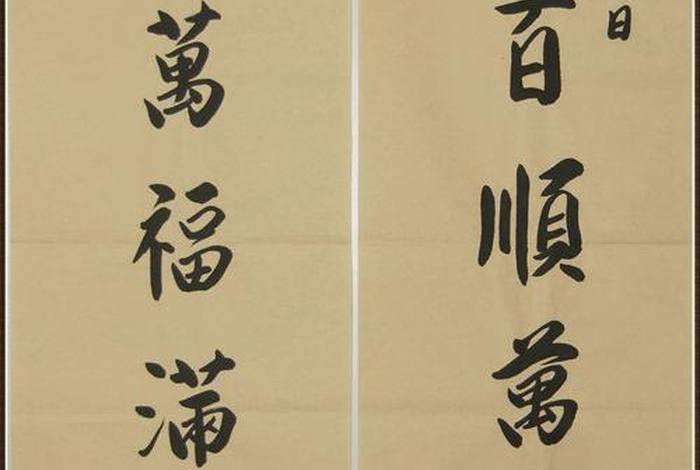 日
百順萬
萬福滿